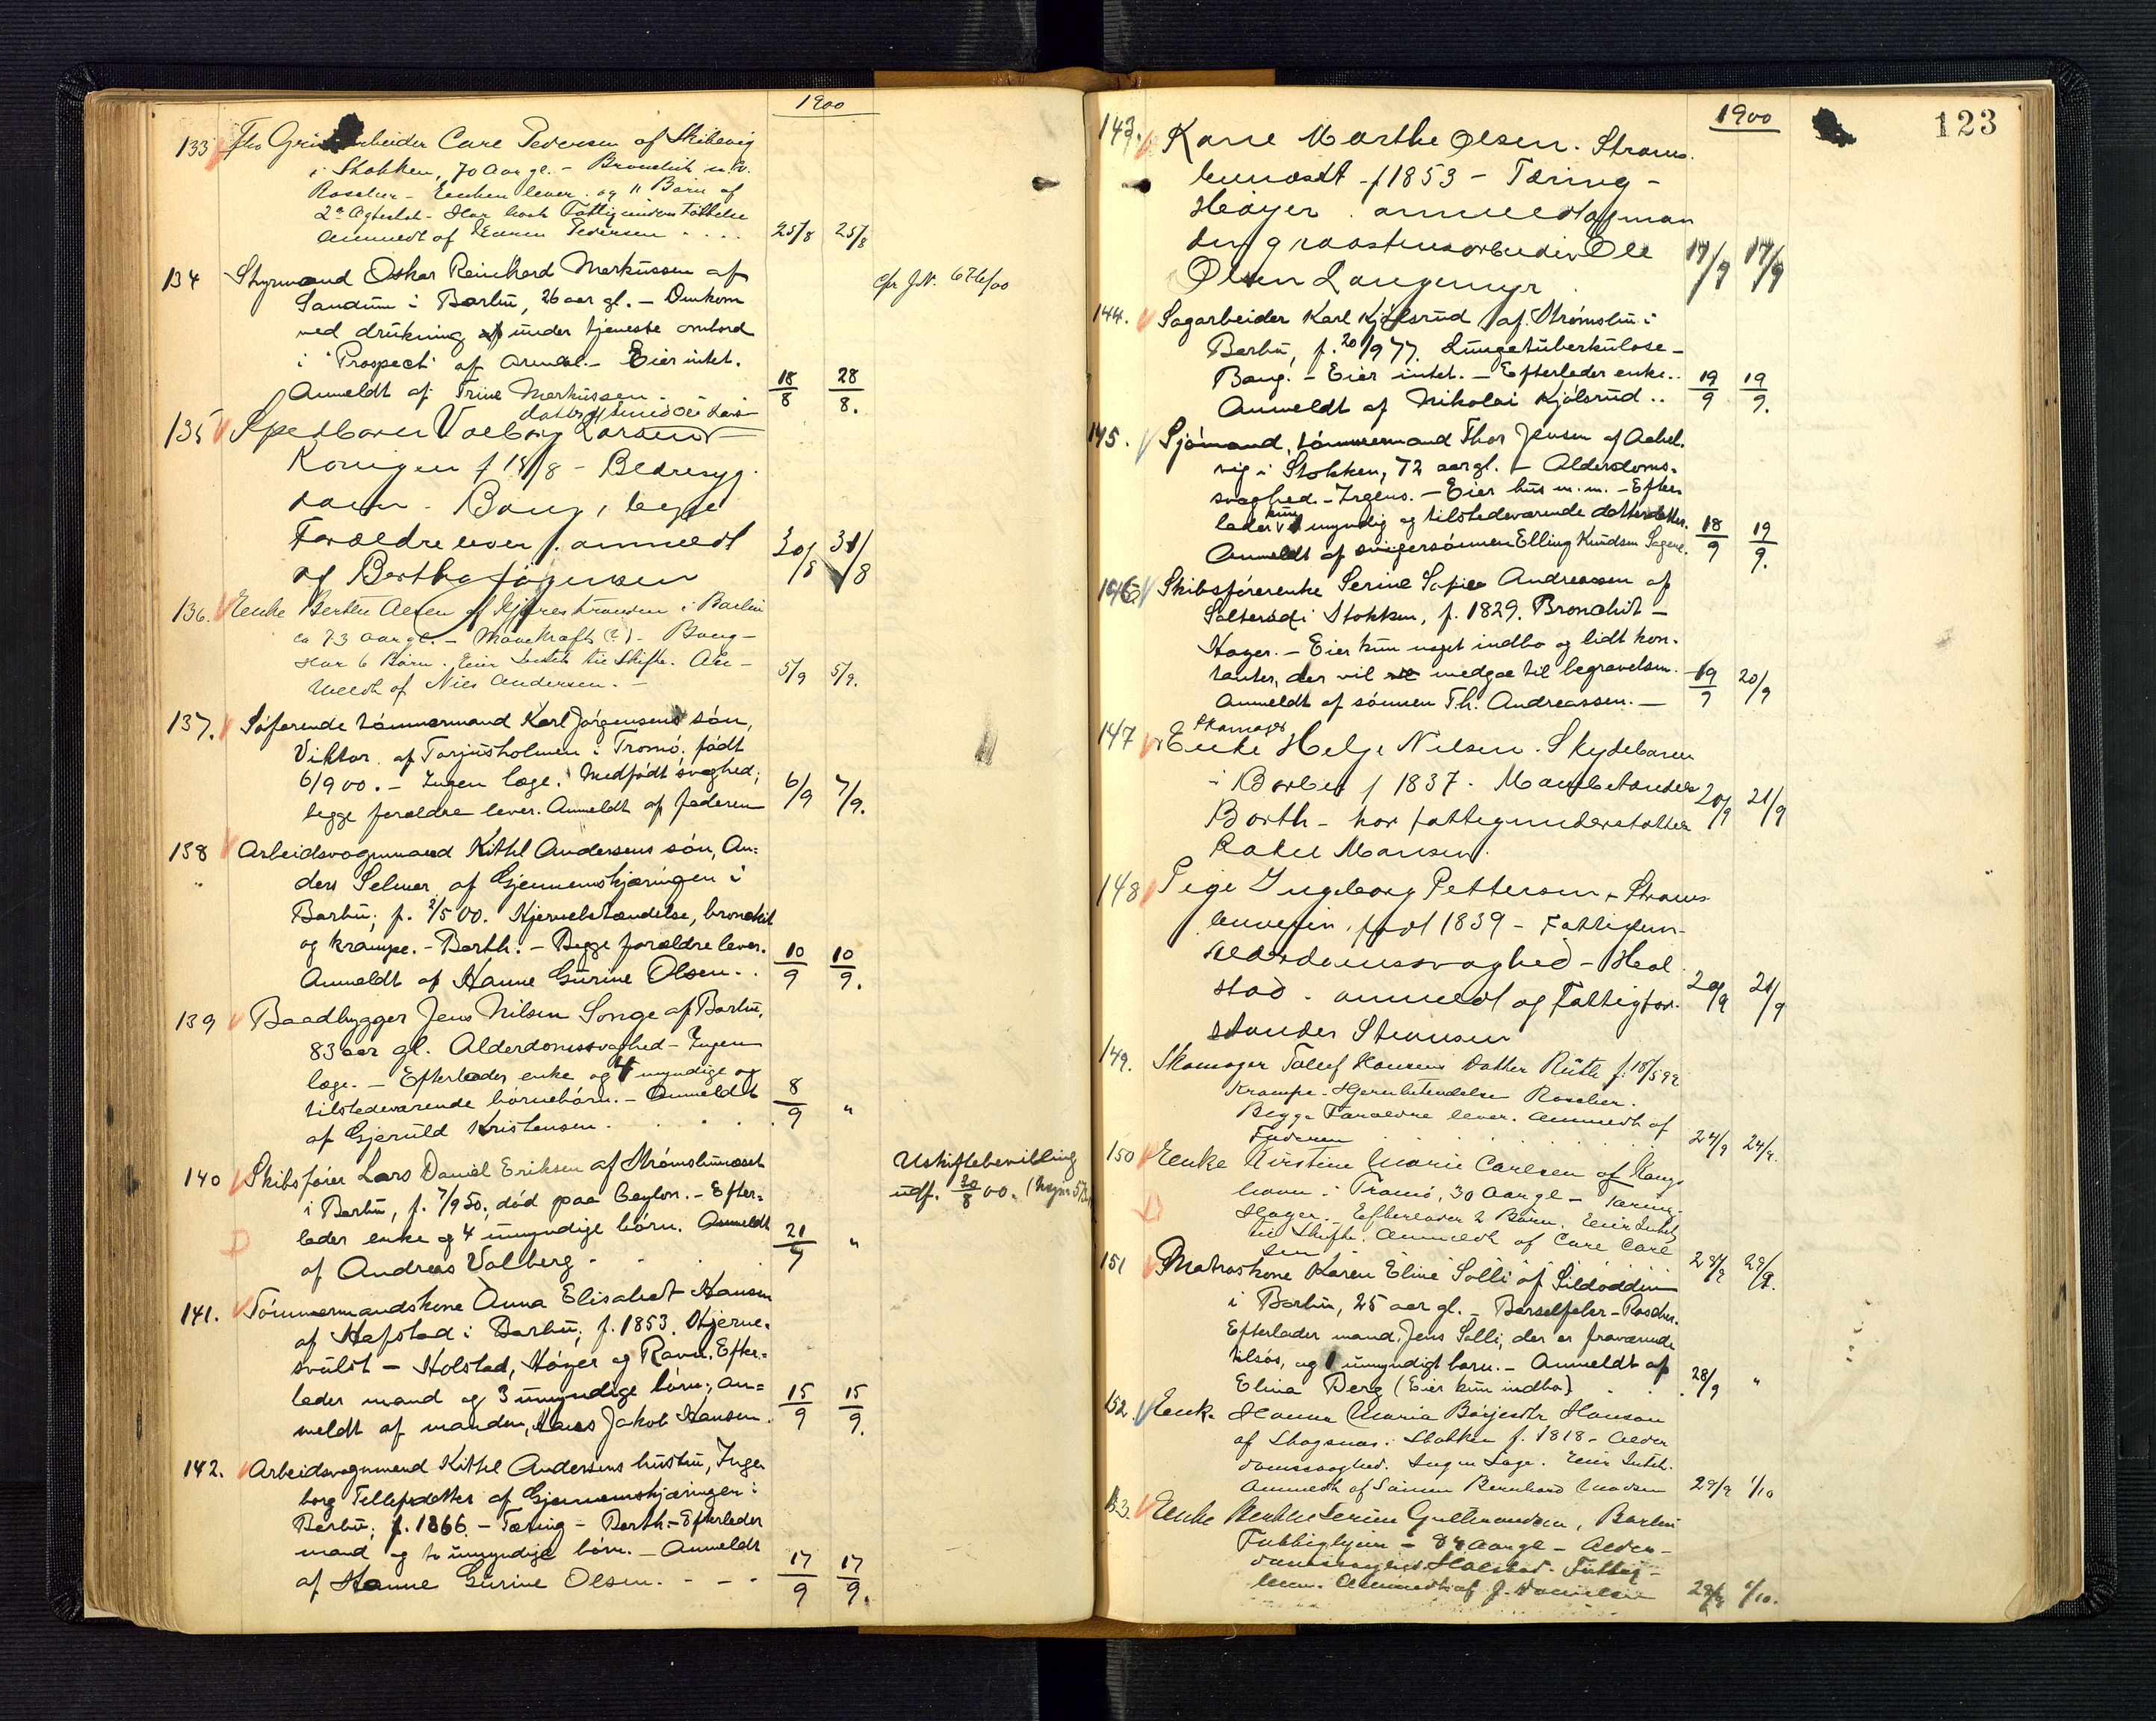 1900
133 Fhv Gru arbeider Carl Pedersen af Skibevig
i Stokken, 70 Aar gl. - Bronchit m.v.
Roscher - Enken lever og 11 Børn af
2det Ægteskab - Har havt Fattigunderstøttelse
Anmeldt af Pedersen . . . . 25/8 25/8
134 Styrmand Oskar Reinhard Markussen af
Sandum i Barbu, 26 aar gl. - Omkom
ved drukning under tjeneste ombord
i "Prospect" af Arendal. - Eier intet.
Anmeldt af Trine Markussen. - 18/8 28/8.
cfr J.N. 676/00
135 Spedbarn Valborg Larsen
Kongen f 15/8 - Bledersyg
dom - Bang, begge
Forældre lever . anmeldt
af Berthe Jørgensen 30/8 31/8
136. Enke Berthe Olsen af Kjerrestranden i Barbu
ca 73 aar gl. - Mavekræft (?) - Bang -
Har 6 Børn. Eier Intet til Skifte. An-
meldt af Niels Andersen. - 5/9 5/9.
137. Søfarende tømmermand Karl Jørgensens søn,
Viktor af Torjusholmen i Tromø. født
6/9 00. - Ingen læge. Medfødt svaghed;
begge forældre lever. Anmeldt af faderen 6/9 7/9.
138 Arbeidsvognmand Kittil Andersens søn, An=
" ders Selmer af Gjennemskjæringen i
Barbu, f. 2/5 00. Hjernebetændelse, bronchit
og krampe. - Barth. - Begge forældre lever.
Anmeldt af Hanne Gurine Olsen. . 10/9 10/9.
139 Baadbygger Jens Nilsen Songe af Barbu,
83 aar gl. Alderdomssvaghed - Ingen
læge. - Efterlader enke og 4 myndige og
tilstedeværende børnebørn. - Anmeldt
af Gjeruld Kristensen. 8/9 "
140 Skibsfører Lars Daniel Eriksen af Strømsbunæset
i Barbu, f. 7/9 50, død paa Ceylon. - Efter=
lader enke og 4 umyndige børn. Anmeldt
af Andreas Valberg - 21/9 "
Uskiftebevilling
udf. 30/8 00.
141. Tømmermandskone Anna Elisabet Hansen
af Hafstad i Barbu, f. 1853. Hjerne=
svulst - Holstad, Høyer og Ravn. Efter=
lader mand og 3 umyndige børn; an=
meldt af manden, Hans Jakob Hansen. 15/9 15/9.
142. Arbeidsvognmand Kittil Andersens hustru, Inge
borg Tellefsdatter af Gjennemskjæringen i
Barbu; f. 1866. - Tæring - Barth. - Efterlader
mand og to umyndige børn. - Anmeldt
af Hanne Gurine Olsen. - - - 17/9 17/9.
1900
123
143. Karle Marthe Olsen. Strøms
bunæset - f 1853 - Tæring -
Høyer . anmeldt af man
den graastensarbeider Ole
Olsen Langemyr 17/9 17/9
144. Sagarbeider Karl Kjølsrud af Strømsbu i
Barbu, f. 20/9 77. Lungetuberkulose -
Bang. - Eier intet. - Efterlader enke. .
Anmeldt af Nikolai Kjølsrud . . 19/9 19/9.
145. Sjømand, tømmermand Thor Jensen af Aabel
vig i Stokken, 72 aar gl. - Alderdoms-
svaghed. - Irgens. - Eier hus m.m. - Efter
lader kun myndig og tilstedeværende datterdatter.
Anmeldt af svigersønnen Elling Knudsen Sagene. 18/9 19/9.
146 Skibsførerenke Serine Sofie Andreassen af
Salterød i Stokken, f. 1829. Bronchit -
Høyer. - Eier kun noget indbo og lidt kon-
tanter, der vil medgaa til begravelsen. -
Anmeldt af sønnen Th. Andreassen. - 19/9 20/9
147 Skomager
Enke Helje Nilsen. Skydebanen
i Barbu f 1837. Mavebetændelse
Barth - har fattigunderstøttelse
Rakel Mansen. 20/9 21/9
148 Pige Ingeborg Pettersen - Strøms
buveien, født 1839 - Fattiglem -
Alderdomssvaghed - Hol
stad . anmeldt af Fattigfor
stander Steansen 20/9 21/9
149. Skomager Tellef Hansens Datter Ruth f. 18/5 99
Krampe - Hjernebetændelse Roscher.
Begge Forældre lever. Anmeldt af
Faderen 24/9 24/9.
150 Enke Kirstine Marie Carlsen af Kongs
havn i Tromø, 30 Aar gl - Tæring -
Høyer. Efterlader 2 Børn. Eier Intet
til Skifte. Anmeldt af Carl Carl
sen 29/9 29/9.
151 Matroskone Karen Eline Solli af Sildodden
i Barbu, 25 aar gl. - Barselfeber - Roscher.
Efterlader mand, Jens Solli, der er fraværende
tilsøs, og 1 umyndigt barn. - Anmeldt af
Elina Berg (Eier kun indbo) . 28/9 "
152. Enke Hanna Maria Børjesdtr Hansen
af Skogsnæs i Stokken f. 1818 - Alder
domssvaghed. Ingen Læge. Eier Intet.
Anmeldt af Sønnen Bernhard Madsen 29/9 1/10
153. Enke Berthe Serine Gullmandsen, Barbu
Fattighjem - 84 Aar gl - Alder-
domssvaghed Holstad. Fattig-
lem. Anmeldt af J. Danielsen 29/9 1/10.